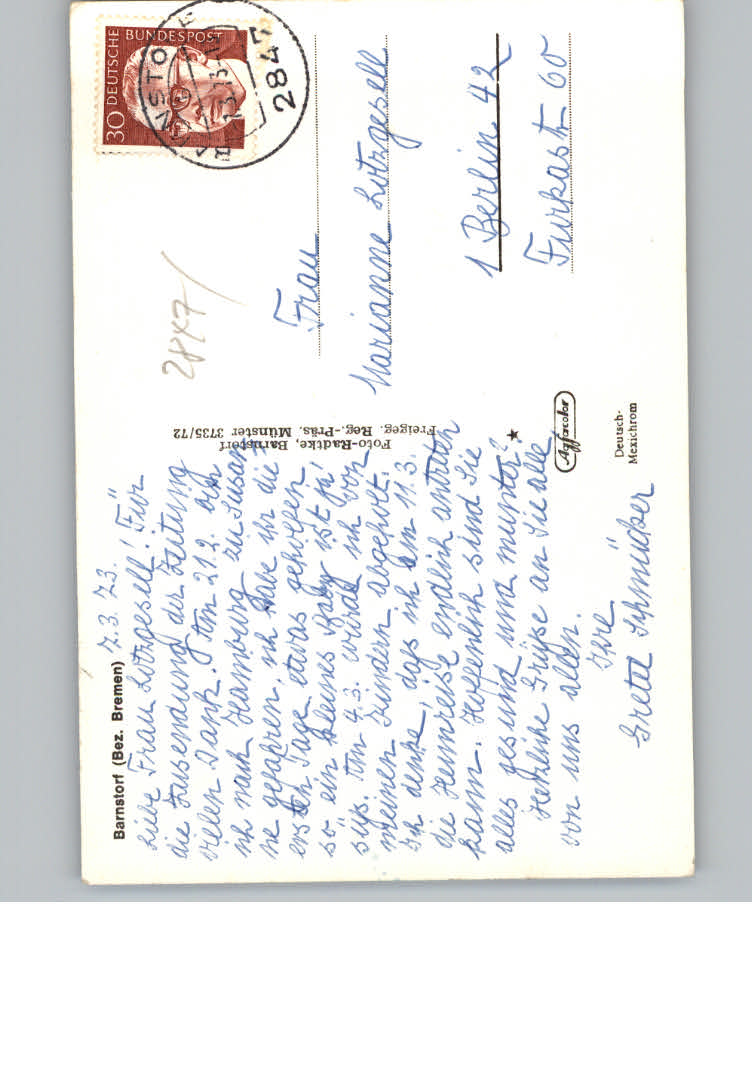 Barnstorf (Bez. Bremen) 7.3.73.
Liebe Frau Lotzgesell! Für
die Zusendung der Zeitung
vielen Dank. Am 21.2. bin
ich nach Hamburg zu Susan
ne gefahren, ich habe ihr die
ersten Tage etwas geholfen
so ein kleines Baby ist ja
süß. Am 4.3. wurde ich von
meinen Kindern abgeholt.
Ich denke, daß ich am 11.3.
die Heimreise endlich antreten
kann. Hoffentlich sind Sie
alles gesund und munter?
Herzliche Grüße an Sie alle,
von uns allen.
Ihre
Gretel Schmücker
Foto-Radtke, Barnstorf
Freigeg. Reg.-Präs. Münster 3735/72
Agfacolor
Deutsch-
Mexichrom
2847
30 DEUTSCHE BUNDESPOST
2847
Frau
Marianne Lotzgesell
1 Berlin 42
Furkastr 60